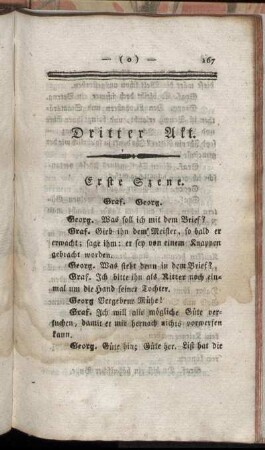 — ( o ) — 167
Dritter Akt.
Erste Szene.
Graf. Georg.
Georg. Was soll ich mit dem Brief?
Graf. Gieb ihn dem Meister, so bald er
erwacht; sage ihm: er sey von einem Knappen
gebracht worden.
Georg. Was steht denn in dem Brief?
Graf. Ich bitte ihn als Ritter noch ein-
mal um die Hand seiner Tochter.
Georg Vergebene Mühe!
Graf. Ich will alle mögliche Güte ver-
suchen, damit er mir hernach nichts vorwerfen
kann.
Georg. Güte hin; Güte her. List hat die